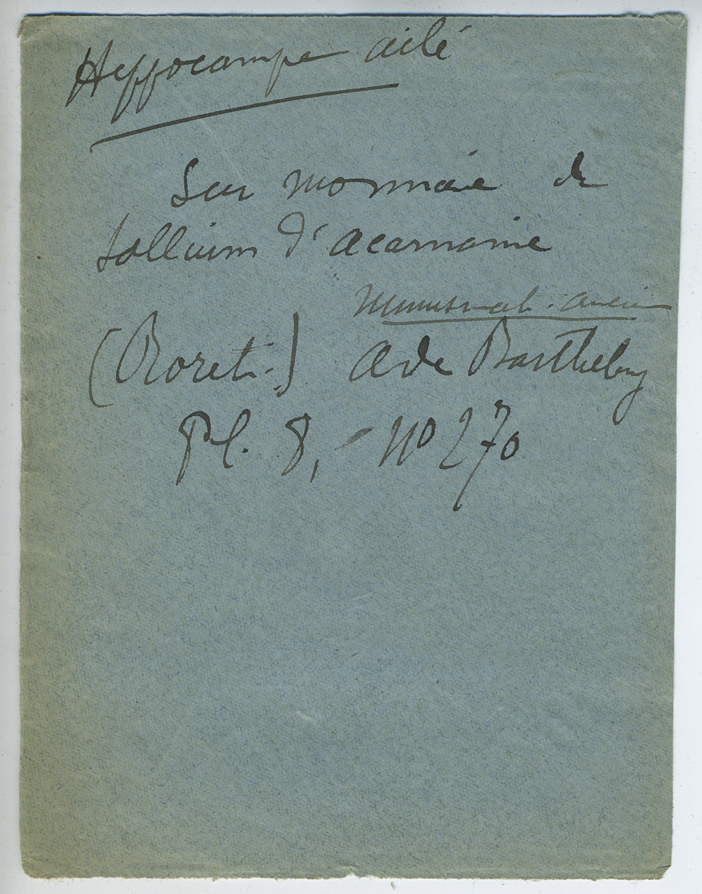 Hyppocampe ailé
Sur monnaie de
Sollium d'Acarnanie
Numismat. ancien
(Roret.) A de Barthelemy
Pl. 8, - no 270